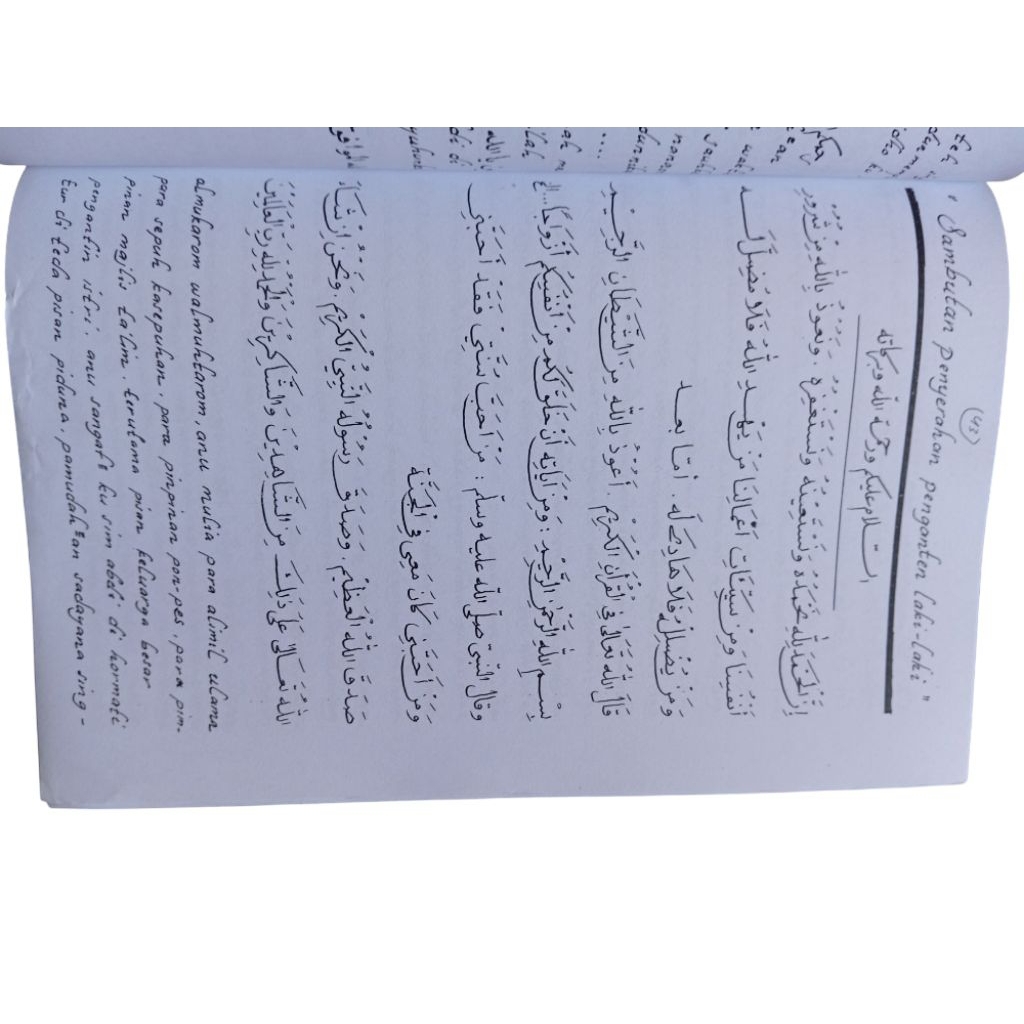 (43)
"Sambutan penyerahan penganten laki-laki"
السّلام عليكم ورحمة الله وبركاته
اِنَّ الْحَمْدَ لِلّٰهِ نَحْمَدُهُ وَنَسْتَعِيْنُهُ وَنَسْتَغْفِرُهُ، وَنَعُوْذُ بِاللهِ مِنْ شُرُوْرِ
أَنْفُسِنَا وَمِنْ سَيِّئَاتِ أَعْمَالِنَا مَنْ يَهْدِ اللهُ فَلَا مُضِلَّ لَــه
وَمَنْ يُضْلِلْ فَلَا هَادِيَ لَه. أمّا بعــد
قَالَ اللهُ تَعَالٰى فِى الْقُرْآنِ الْكَرِيْمِ. أَعُوْذُ بِاللهِ مِنَ الشَّيْطَانِ الرَّجِـيْـمِ
بِسْــمِ اللهِ الرَّحْمٰنِ الرَّحِيْمِ : وَمِنْ آيَاتِهِ أَنْ خَلَقَ لَكُمْ مِنْ أَنْفُسِكُمْ أَزْوَاجًا...الخ
وقال النّبيّ صلّى الله عليه وسلّم : مَنْ أَحَبَّ سُنَّتِيْ فَقَدْ أَحَبَّنِى
وَمَنْ أَحَبَّنِى كَانَ مَعِيْ فِى الْجَنَّةِ
صَدَقَ اللهُ الْعَظِيْمِ. وَصَدَقَ رَسُوْلُهُ النَّبِيُّ الْكَرِيْمُ. وَنَحْنُ اِنْ شَاءَ
اللهُ تَعَالٰى عَلٰى ذٰلِكَ مِنَ الشَّاهِدِيْنَ وَالشَّاكِرِيْنَ وَالْحَمْدُ لِلّٰهِ رَبِّ الْعَالَمِيْنَ
almukarom walmuhtarom, anu mulia para alimil ulama
para sepuh kasepuhan, para pinpinan pon-pes, para pim-
pinan majlis ta'lim, terutama pisan keluarga besar
pengantin istri. anu sangat ku sim abdi di hormati
tur di teda pisan pidu'na, pamudah²an sadayana sing-